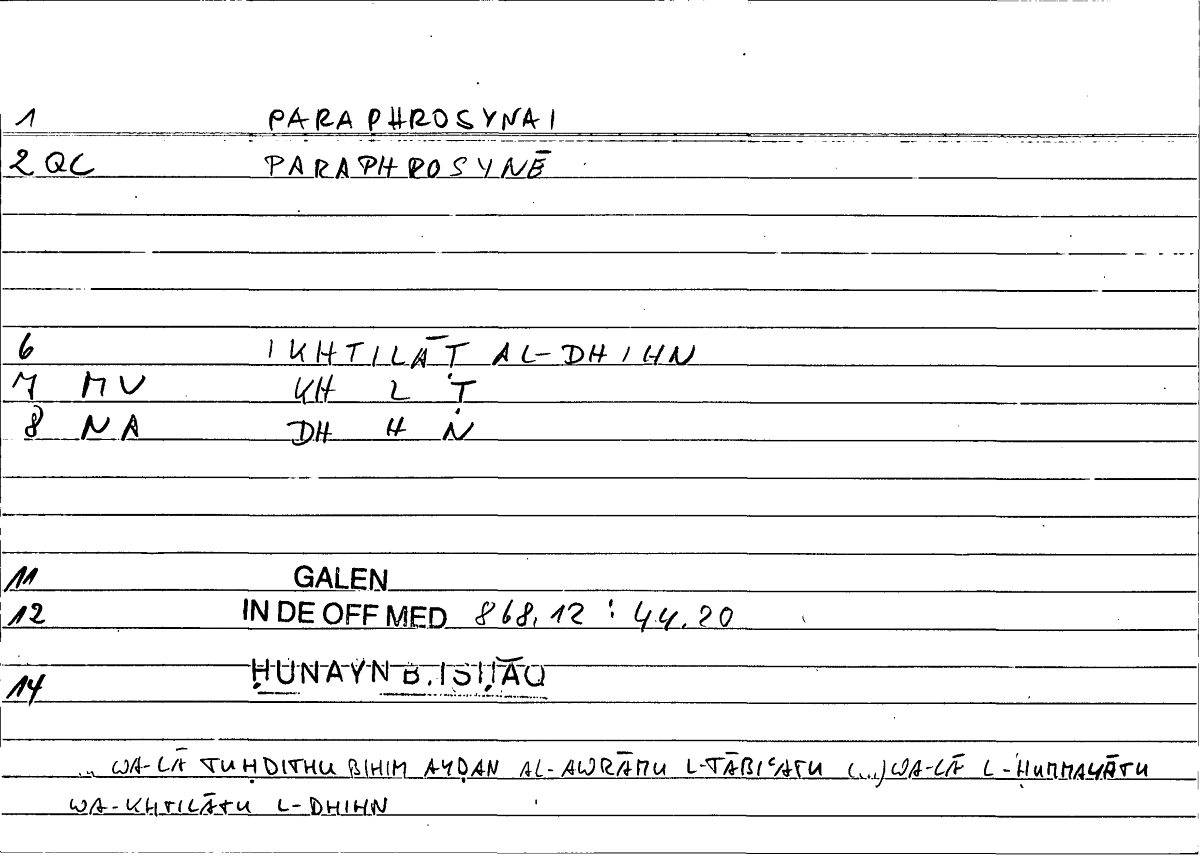 1 PARAPHROSYNAI
2 QC PARAPHROSYNĒ
6 IKHTILĀṬ AL-DHIHN
7 MV KH L Ṭ
8 NA DH H N
11 GALEN
12 IN DE OFF MED 868,12 : 44.20
14 ḤUNAYN B. ISḤĀQ
... WA-LĀ TUḤDITHU BIHIM AYḌAN AL-AWRĀMU L-TĀBIʿATU (...) WA-LĀ L-ḤUMMAYĀTU
WA-KHTILĀTU L-DHIHN